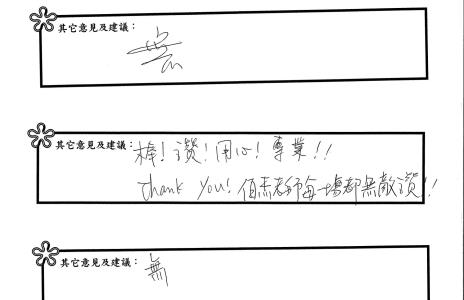 其它意見及建議：
無
其它意見及建議：棒！讚！用心！專業！！
thank you！伯杰老師每一場都無敵讚！！
其它意見及建議：
無